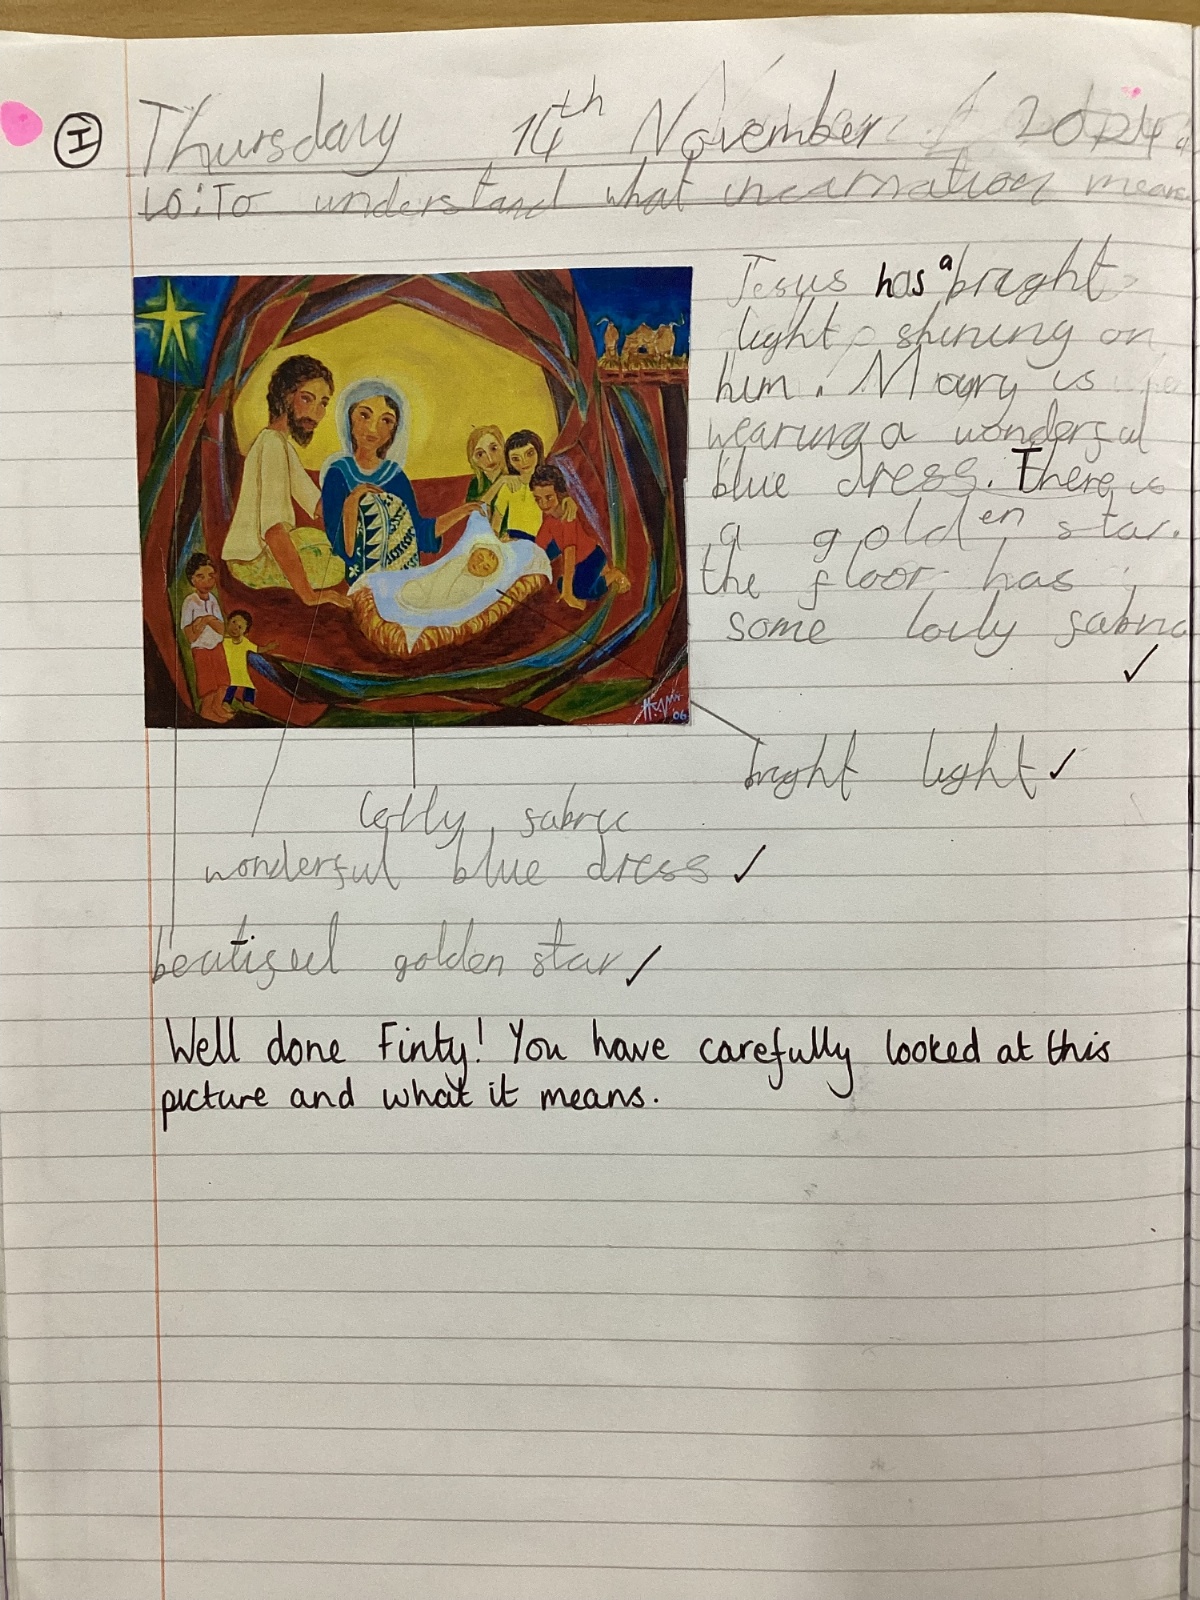 I
Thursday 14th November 2024
LO: To understand what incarnation means
Jesus has a bright
light shining on
him. Mary is
wearing a wonderful
blue dress. There is
a golden star.
the floor has
some lovly fabric
06
bright light
fabric
wonderful blue dress
beatiful golden star
Well done Finty! You have carefully looked at this
picture and what it means.